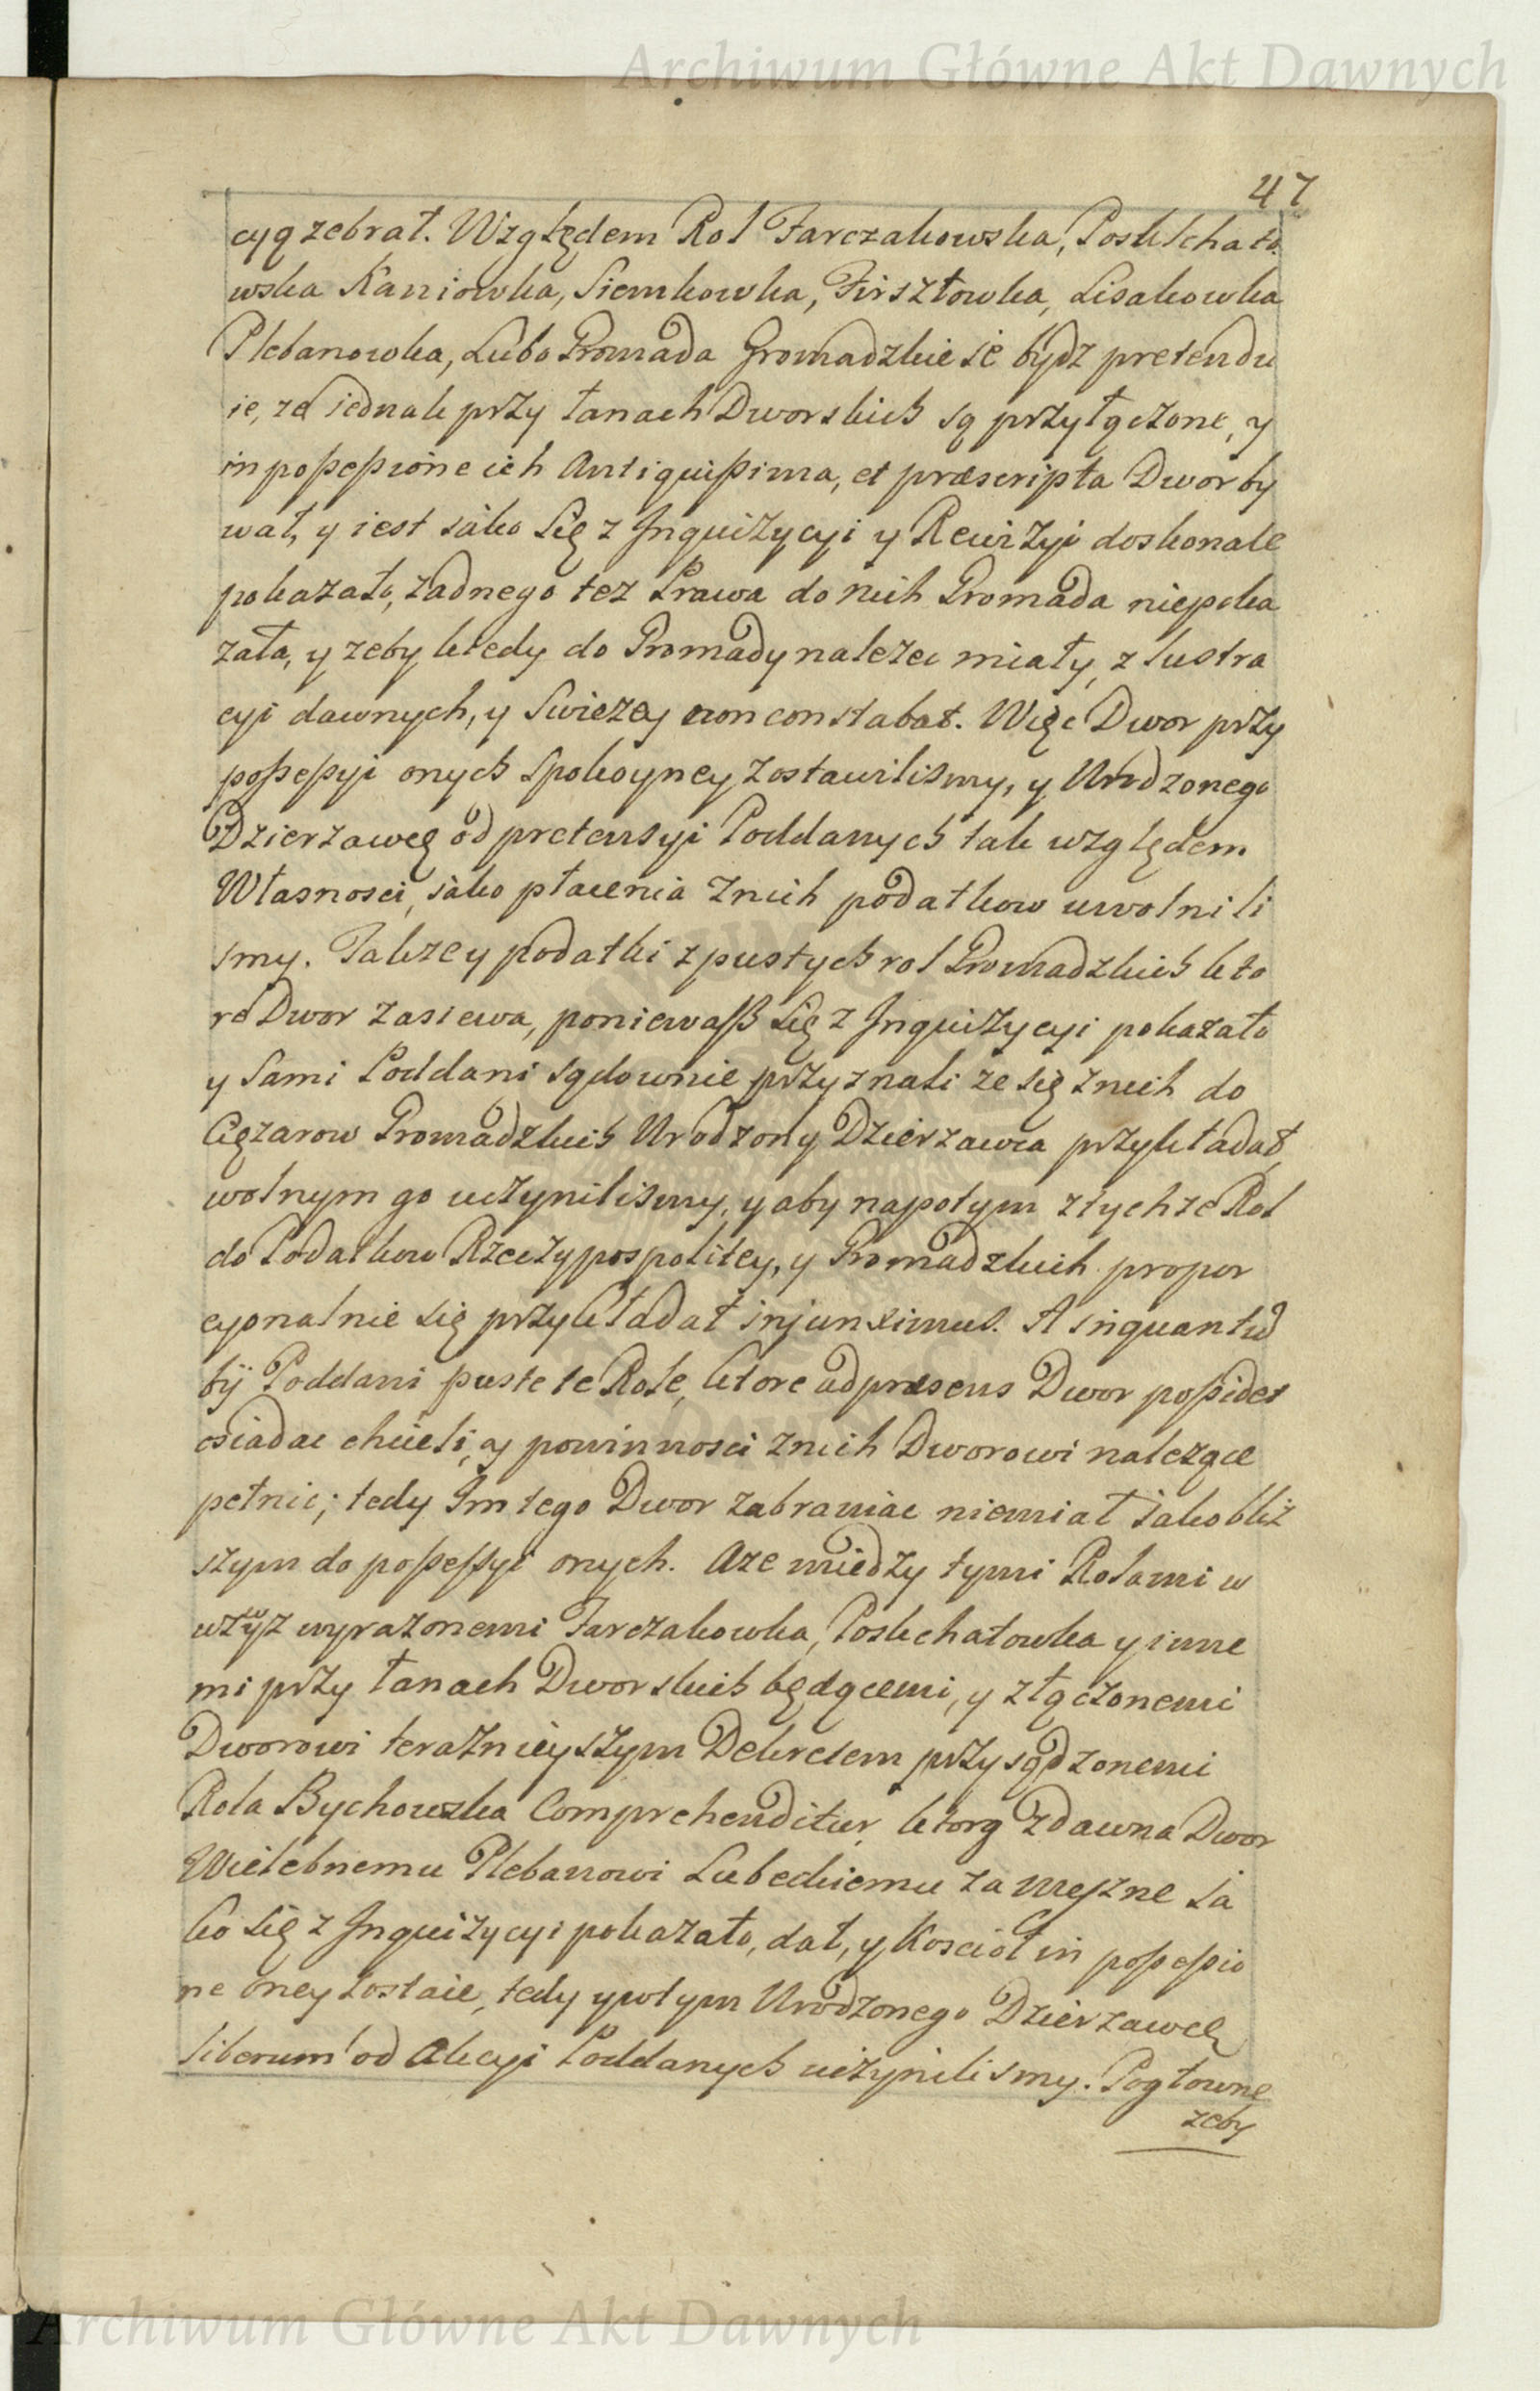 Archiwum Główne Akt Dawnych
47
cyą zebrał. Względem Rol Tarczakowska, Poskchało
wska Kaniowka, Siemkowka, Firsztowka, Lisakowka
Plebanowka, Lubo Gromada Gromadzkie ie bydz pretendu
ie, ze iednak przy łanach Dworskich są przyłączone, y
in poßeßione ich Antiquißima, et præscripta Dwor by
wał, y iest iako Się z Inquizycyi y Rewizyi doskonale
pokazało, zadnego tez Prawa do nich Gromada niepoka
zała, y zeby kiedy do Gromady nalezec miały, z lustra
cyi dawnych, y Swiezey non constabat. Więc Dwor przy
poßeßyi onych Spokoyney zostawilismy, y Urodzonego
Dzierzawcę od pretensyi Poddanych tak względem
Własnosci, iako płacenia znich podatkow uwolnili
smy. Takze y podatki z pustych rol Gromadzkich kto
re Dwor zasiewa, poniewaß Się z Inquizycyi pokazało
y Sami Poddani sądownie przyznali ze się znich do
Cięzarow Gromadzkich Urodzony Dzierzawca przykładał,
wolnym go uczynilismy, y aby napotym z tychze Rol
do Podatkow Rzeczypospolitey, y Gromadzkich propor
cyonalnie się przykładał injunximus. A inquantu
by Poddani puste te Role, ktore ad præsens Dwor poßidet
osiadac chcieli, y powinnosci znich Dworowi nalezące
pełnic; tedy Im tego Dwor zabraniac niemiał iako bliż
szym do poßeßyi onych. Aze miedzy tymi Rolami w
wzwyz wyrazonemi Tarczakowka, Poskchałowka y inne
mi przy łanach Dworskich będącemi, y złączonemi
Dworowi teraznieyszym Dekretem przysądzonemi
Rola Bychowska Comprehenditur, ktorą zdawna Dwor
Wielebnemu Plebanowi Lubeckiemu za meszne Ja
ko Się z Inquizycyi pokazało, dał, y Kosciół in poßeßio
ne oney zostaie, tedy y wtym Urodzonego Dzierzawcę
liberum od Akcyi Poddanych uczynilismy. Pogłowne
zeby
Archiwum Główne Akt Dawnych